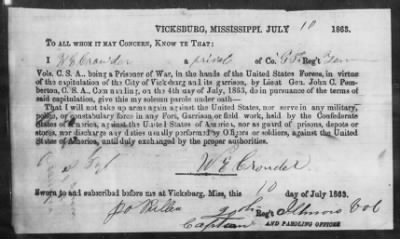 VICKSBURG, MISSISSIPPI. JULY 10 1863.
TO ALL WHOM IT MAY CONCERN, KNOW YE THAT:
I W E Crowder a private of Co. Reg't
Vols. C. S. A., being a Prisoner of War, in the hands of the United States Forces, in virtue
of the capitulation of the City of Vicksburg and its garrison, by Lieut Gen. John C. Pem-
berton, C. S. A., Commanding, on the 4th day of July, 1863, do in pursuance of the terms of
said capitulation, give this my solemn parole under oath—
That I will not take up arms again against the United States, nor serve in any military,
police, or constabulary force in any Fort, Garrison or field work, held by the Confederate
States of America, against the United States of America, nor as guard of prisons, depots or
stores, nor discharge any duties usually performed by Officers or soldiers, against the United
States of America, until duly exchanged by the proper authorities.
W E Crowder
Sworn to and subscribed before me at Vicksburg, Miss, this 10 day of July 1863.
Reg't Illinois Vol
Captain AND PAROLING OFFICER